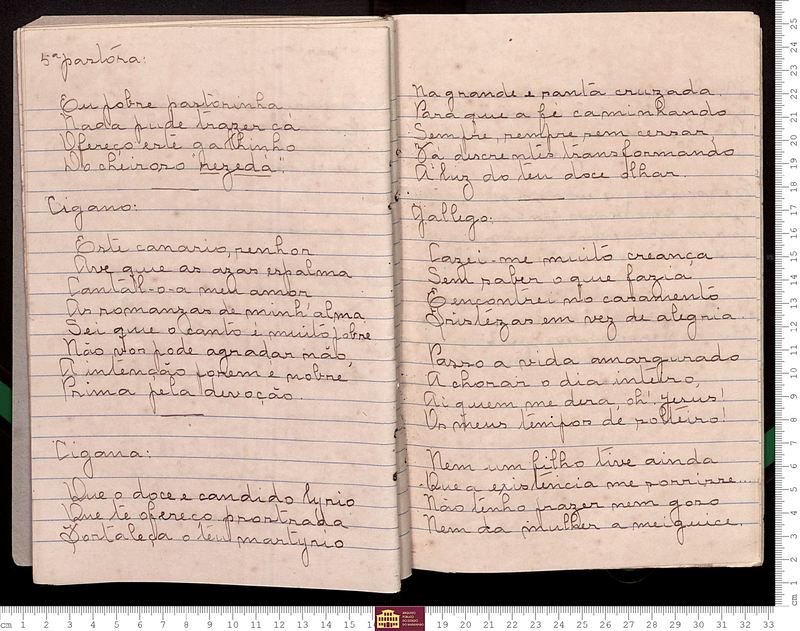 5ª pastôra:
Eu pobre pastorinha
Nada pude trazer cá
Ofereço este galhinho
Do cheiroso "rezedá".
Cigano:
Este canario, senhor
Ave que as azas espalma
Cantal-o-a meu amor
As romanzas de minh'alma
Sei que o canto é muito pobre
Não vos pode agradar não,
A intenção porem e nobre
Prima pela devoção.
Cigana:
Que o doce e candido lyrio
Que te ofereço prostrada
Fortaleça o teu martyrio
Na grande e santa cruzada.
Para que a fé caminhando
Sempre, sempre sem cessar,
Vá discrentes transformando
A luz do teu doce olhar.
Gallego:
Cazei-me muito creança
Sem saber o que fazia
E encontrei no casamento
Tristezas em vez de alegria.
Passo a vida amargurado
A chorar o dia inteiro,
Ai quem me dera, oh! Jesus!
Os meus tempos de solteiro!
Nem um filho tive ainda
Que a existencia me sorrisse....
Não tenho prazer nem goso
Nem da mulher a meiguice.
ARQUIVO PÚBLICO DO ESTADO DO MARANHÃO
cm 1 2 3 4 5 6 7 8 9 10 11 12 13 14 15 16 19 20 21 22 23 24 25 26 27 28 29 30 31 32 33
25 24 23 22 21 20 19 18 17 16 15 14 13 12 11 10 9 8 7 6 5 4 3 2 1 cm